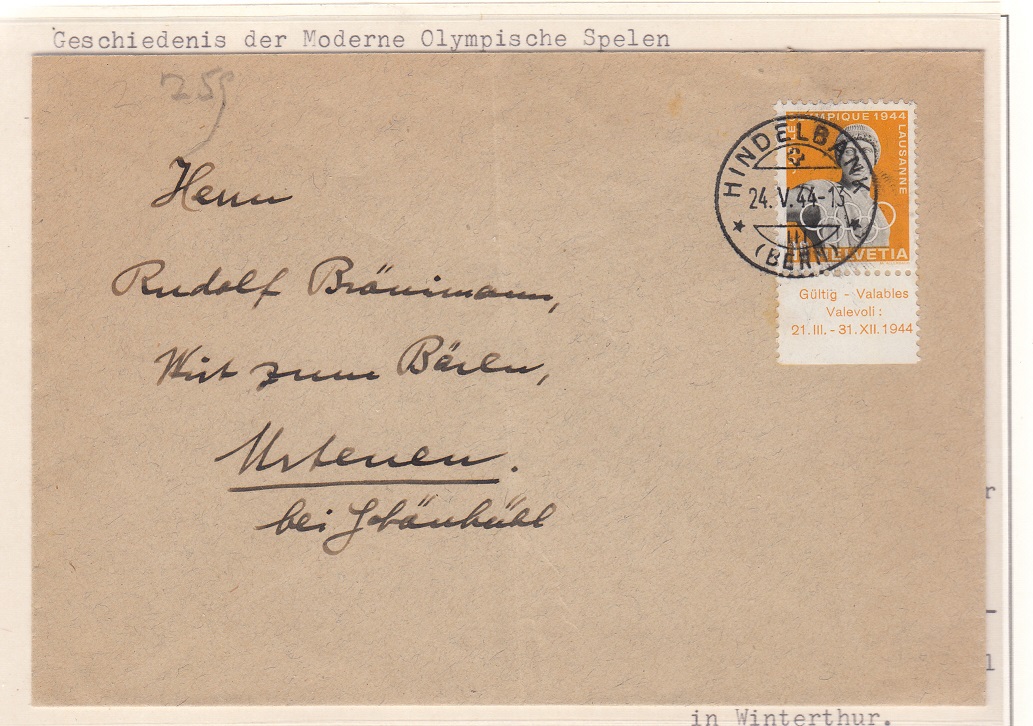 Geschiedenis der Moderne Olympische Spelen
259
Herrn
Rudolf Brönimann,
Wirt zum Bären,
Urtenen.
bei Schönbühl
OLYMPIQUE 1944
LAUSANNE
HELVETIA
HINDELBANK
24. V. 44-13
III
(BERN)
Gültig - Valables
Valevoli:
21. III. - 31. XII. 1944
r
-
l
in Winterthur.